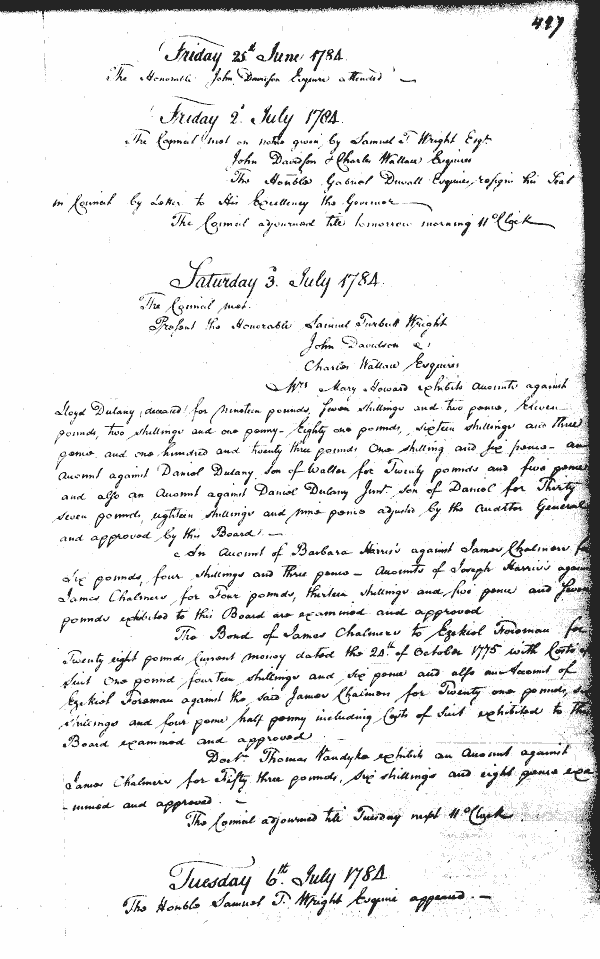 427
Friday 25th June 1784
The Honorable John Davidson Esquire attended
Friday 2d July 1784
The Council met on notice given by Samuel T. Wright Esqr.
John Davidson & Charles Wallace Esquires
The Honble Gabriel Duvall Esquire, resigns his Seat
in Council by Letter to His Excellency the Governor
The Council adjourned till tomorrow morning 11 oClock
Saturday 3d July 1784
The Council met.
Present the Honorable Samuel Turbutt Wright
John Davidson &
Charles Wallace Esquires
Mrs Mary Howard exhibits Accounts against
Lloyd Dulany, deceased for nineteen pounds, seven shillings and two pence, Eleven
pounds, two shillings and one penny - Eighty one pounds, sixteen shillings and three
pence, and one hundred and twenty three pounds One shilling and six pence - an
Account against Daniel Dulany son of Walter for Twenty pounds and five pence
and also an Account against Daniel Dulany Junr. son of Daniel for Thirty
seven pounds eighteen shillings and nine pence adjusted by the Auditor General
and approved by this Board. -
An Account of Barbara Harris's against James Chalmers for
Six pounds, four shillings and three pence - Accounts of Joseph Harris's against
James Chalmers for Four pounds, thirteen shillings and five pence and Seven
pounds exhibited to this Board are examined and approved
The Bond of James Chalmers to Ezekiel Foreman for
Twenty eight pounds Current money dated the 24th of October 1775 with Costs of
Suit One pound fourteen shillings and six pence and also an Account of
Ezekiel Foreman against the said James Chalmers for Twenty one pounds, six
shillings and four pence half penny including Costs of Suit exhibited to this
Board examined and approved
Doctr Thomas Vandyke exhibits an Account against
James Chalmers for Fifty three pounds, six shillings and eight pence exa
-mined and approved. -
The Council adjourned till Tuesday next 11 oClock
Tuesday 6th July 1784
The Honble Samuel T. Wright Esquire appeared. -